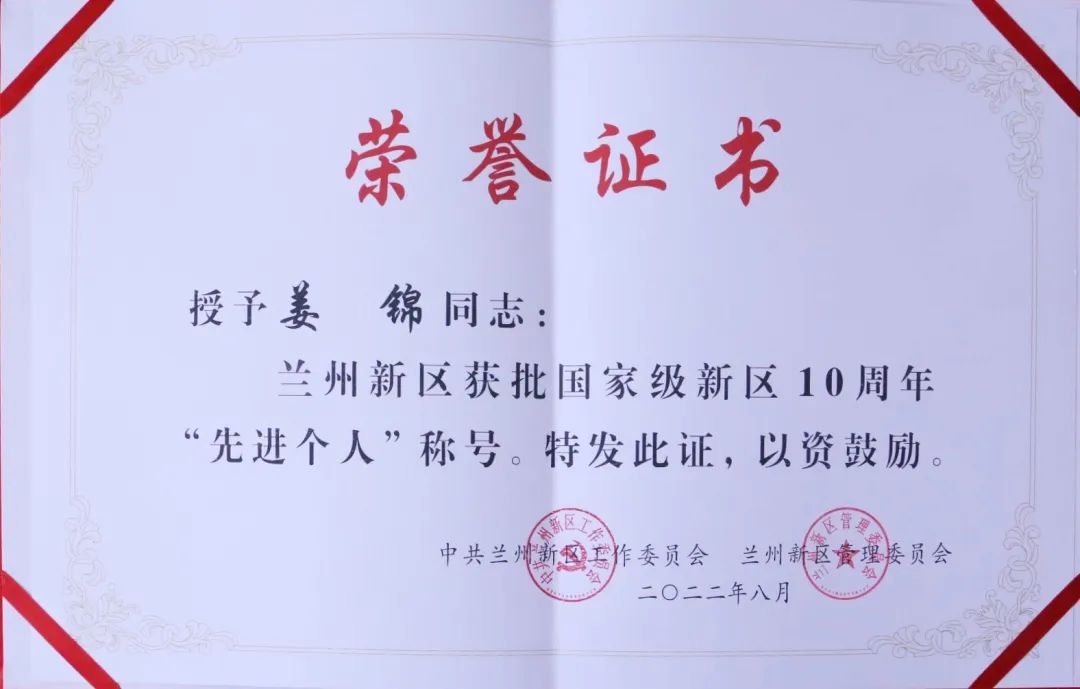 荣誉证书
授予姜 锦同志：
兰州新区获批国家级新区10周年
“先进个人”称号。特发此证，以资鼓励。
中共兰州新区工作委员会 兰州新区管理委员会
二〇二二年八月
中共兰州新区工作委员会
兰州新区管理委员会